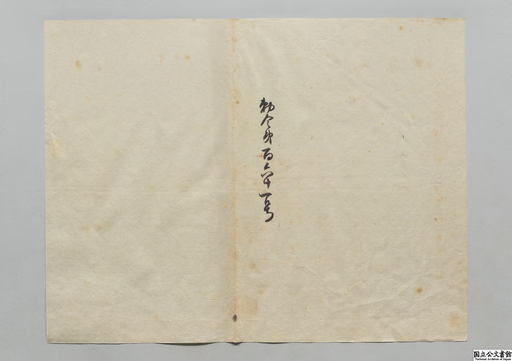 勅令第百六十一号
国立公文書館
National Archives of Japan